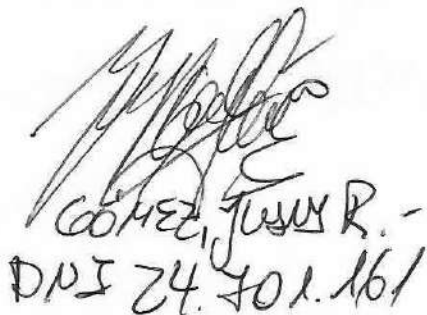 GÓMEZ, JUAN R.-
DNI 24.701.161